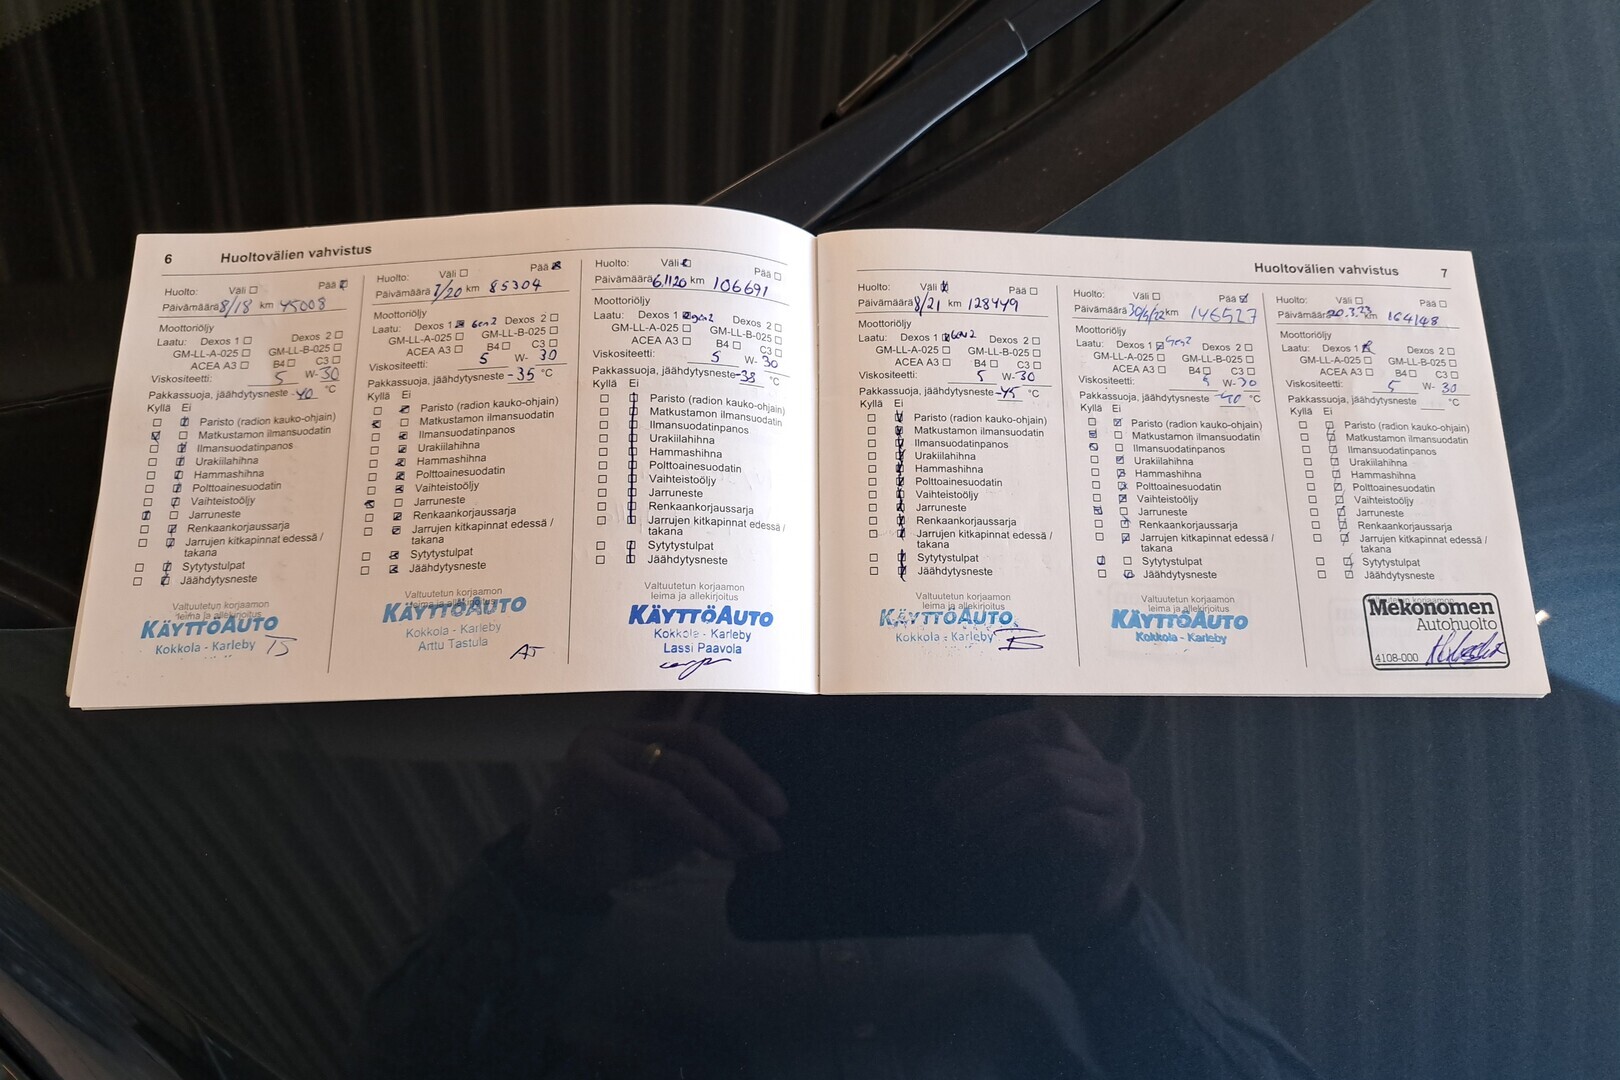 6 Huoltovälien vahvistus
Huolto: Väli Pää
Päivämäärä 8/18 km 45008
Moottoriöljy
Laatu: Dexos 1 Dexos 2
GM-LL-A-025 GM-LL-B-025
ACEA A3 B4 C3
Viskositeetti: 5 W-30
Pakkassuoja, jäähdytysneste -40 °C
Kyllä Ei
Paristo (radion kauko-ohjain)
Matkustamon ilmansuodatin
Ilmansuodatinpanos
Urakiilahihna
Hammashihna
Polttoainesuodatin
Vaihteistoöljy
Jarruneste
Renkaankorjaussarja
Jarrujen kitkapinnat edessä /
takana
Sytytystulpat
Jäähdytysneste
Valtuutetun korjaamon
leima ja allekirjoitus
KÄYTTÖAUTO
Kokkola - Karleby TS
Huolto: Väli Pää
Päivämäärä 7/20 km 85304
Moottoriöljy
Laatu: Dexos 1 Gen2 Dexos 2
GM-LL-A-025 GM-LL-B-025
ACEA A3 B4 C3
Viskositeetti: 5 W-30
Pakkassuoja, jäähdytysneste -35 °C
Kyllä Ei
Paristo (radion kauko-ohjain)
Matkustamon ilmansuodatin
Ilmansuodatinpanos
Urakiilahihna
Hammashihna
Polttoainesuodatin
Vaihteistoöljy
Jarruneste
Renkaankorjaussarja
Jarrujen kitkapinnat edessä /
takana
Sytytystulpat
Jäähdytysneste
Valtuutetun korjaamon
leima ja allekirjoitus
KÄYTTÖAUTO
Kokkola - Karleby
Arttu Tastula
AT
Huolto: Väli Pää
Päivämäärä 6.1120 km 106691
Moottoriöljy
Laatu: Dexos 1 gen2 Dexos 2
GM-LL-A-025 GM-LL-B-025
ACEA A3 B4 C3
Viskositeetti: 5 W-30
Pakkassuoja, jäähdytysneste -38 °C
Kyllä Ei
Paristo (radion kauko-ohjain)
Matkustamon ilmansuodatin
Ilmansuodatinpanos
Urakiilahihna
Hammashihna
Polttoainesuodatin
Vaihteistoöljy
Jarruneste
Renkaankorjaussarja
Jarrujen kitkapinnat edessä /
takana
Sytytystulpat
Jäähdytysneste
Valtuutetun korjaamon
leima ja allekirjoitus
KÄYTTÖAUTO
Kokkola - Karleby
Lassi Paavola
Huoltovälien vahvistus 7
Huolto: Väli Pää
Päivämäärä 8/21 km 128449
Moottoriöljy
Laatu: Dexos 1 Gen2 Dexos 2
GM-LL-A-025 GM-LL-B-025
ACEA A3 B4 C3
Viskositeetti: 5 W-30
Pakkassuoja, jäähdytysneste -45 °C
Kyllä Ei
Paristo (radion kauko-ohjain)
Matkustamon ilmansuodatin
Ilmansuodatinpanos
Urakiilahihna
Hammashihna
Polttoainesuodatin
Vaihteistoöljy
Jarruneste
Renkaankorjaussarja
Jarrujen kitkapinnat edessä /
takana
Sytytystulpat
Jäähdytysneste
Valtuutetun korjaamon
leima ja allekirjoitus
KÄYTTÖAUTO
Kokkola - Karleby
Huolto: Väli Pää
Päivämäärä 30/5/22 km 146527
Moottoriöljy
Laatu: Dexos 1 Gen2 Dexos 2
GM-LL-A-025 GM-LL-B-025
ACEA A3 B4 C3
Viskositeetti: 5 W-30
Pakkassuoja, jäähdytysneste -40 °C
Kyllä Ei
Paristo (radion kauko-ohjain)
Matkustamon ilmansuodatin
Ilmansuodatinpanos
Urakiilahihna
Hammashihna
Polttoainesuodatin
Vaihteistoöljy
Jarruneste
Renkaankorjaussarja
Jarrujen kitkapinnat edessä /
takana
Sytytystulpat
Jäähdytysneste
Valtuutetun korjaamon
leima ja allekirjoitus
KÄYTTÖAUTO
Kokkola - Karleby
Huolto: Väli Pää
Päivämäärä 20.3.23 km 164148
Moottoriöljy
Laatu: Dexos 1 Dexos 2
GM-LL-A-025 GM-LL-B-025
ACEA A3 B4 C3
Viskositeetti: 5 W-30
Pakkassuoja, jäähdytysneste °C
Kyllä Ei
Paristo (radion kauko-ohjain)
Matkustamon ilmansuodatin
Ilmansuodatinpanos
Urakiilahihna
Hammashihna
Polttoainesuodatin
Vaihteistoöljy
Jarruneste
Renkaankorjaussarja
Jarrujen kitkapinnat edessä /
takana
Sytytystulpat
Jäähdytysneste
Mekonomen
Autohuolto
4108-000